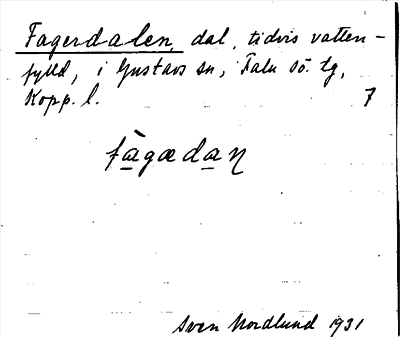 Fagerdalen, dal, tidvis vatten-
fylld, i Gustavs sn, Falu sö. tg,
Kopp. l. 7
fàgædaɳ
Sven Nordlund 1931